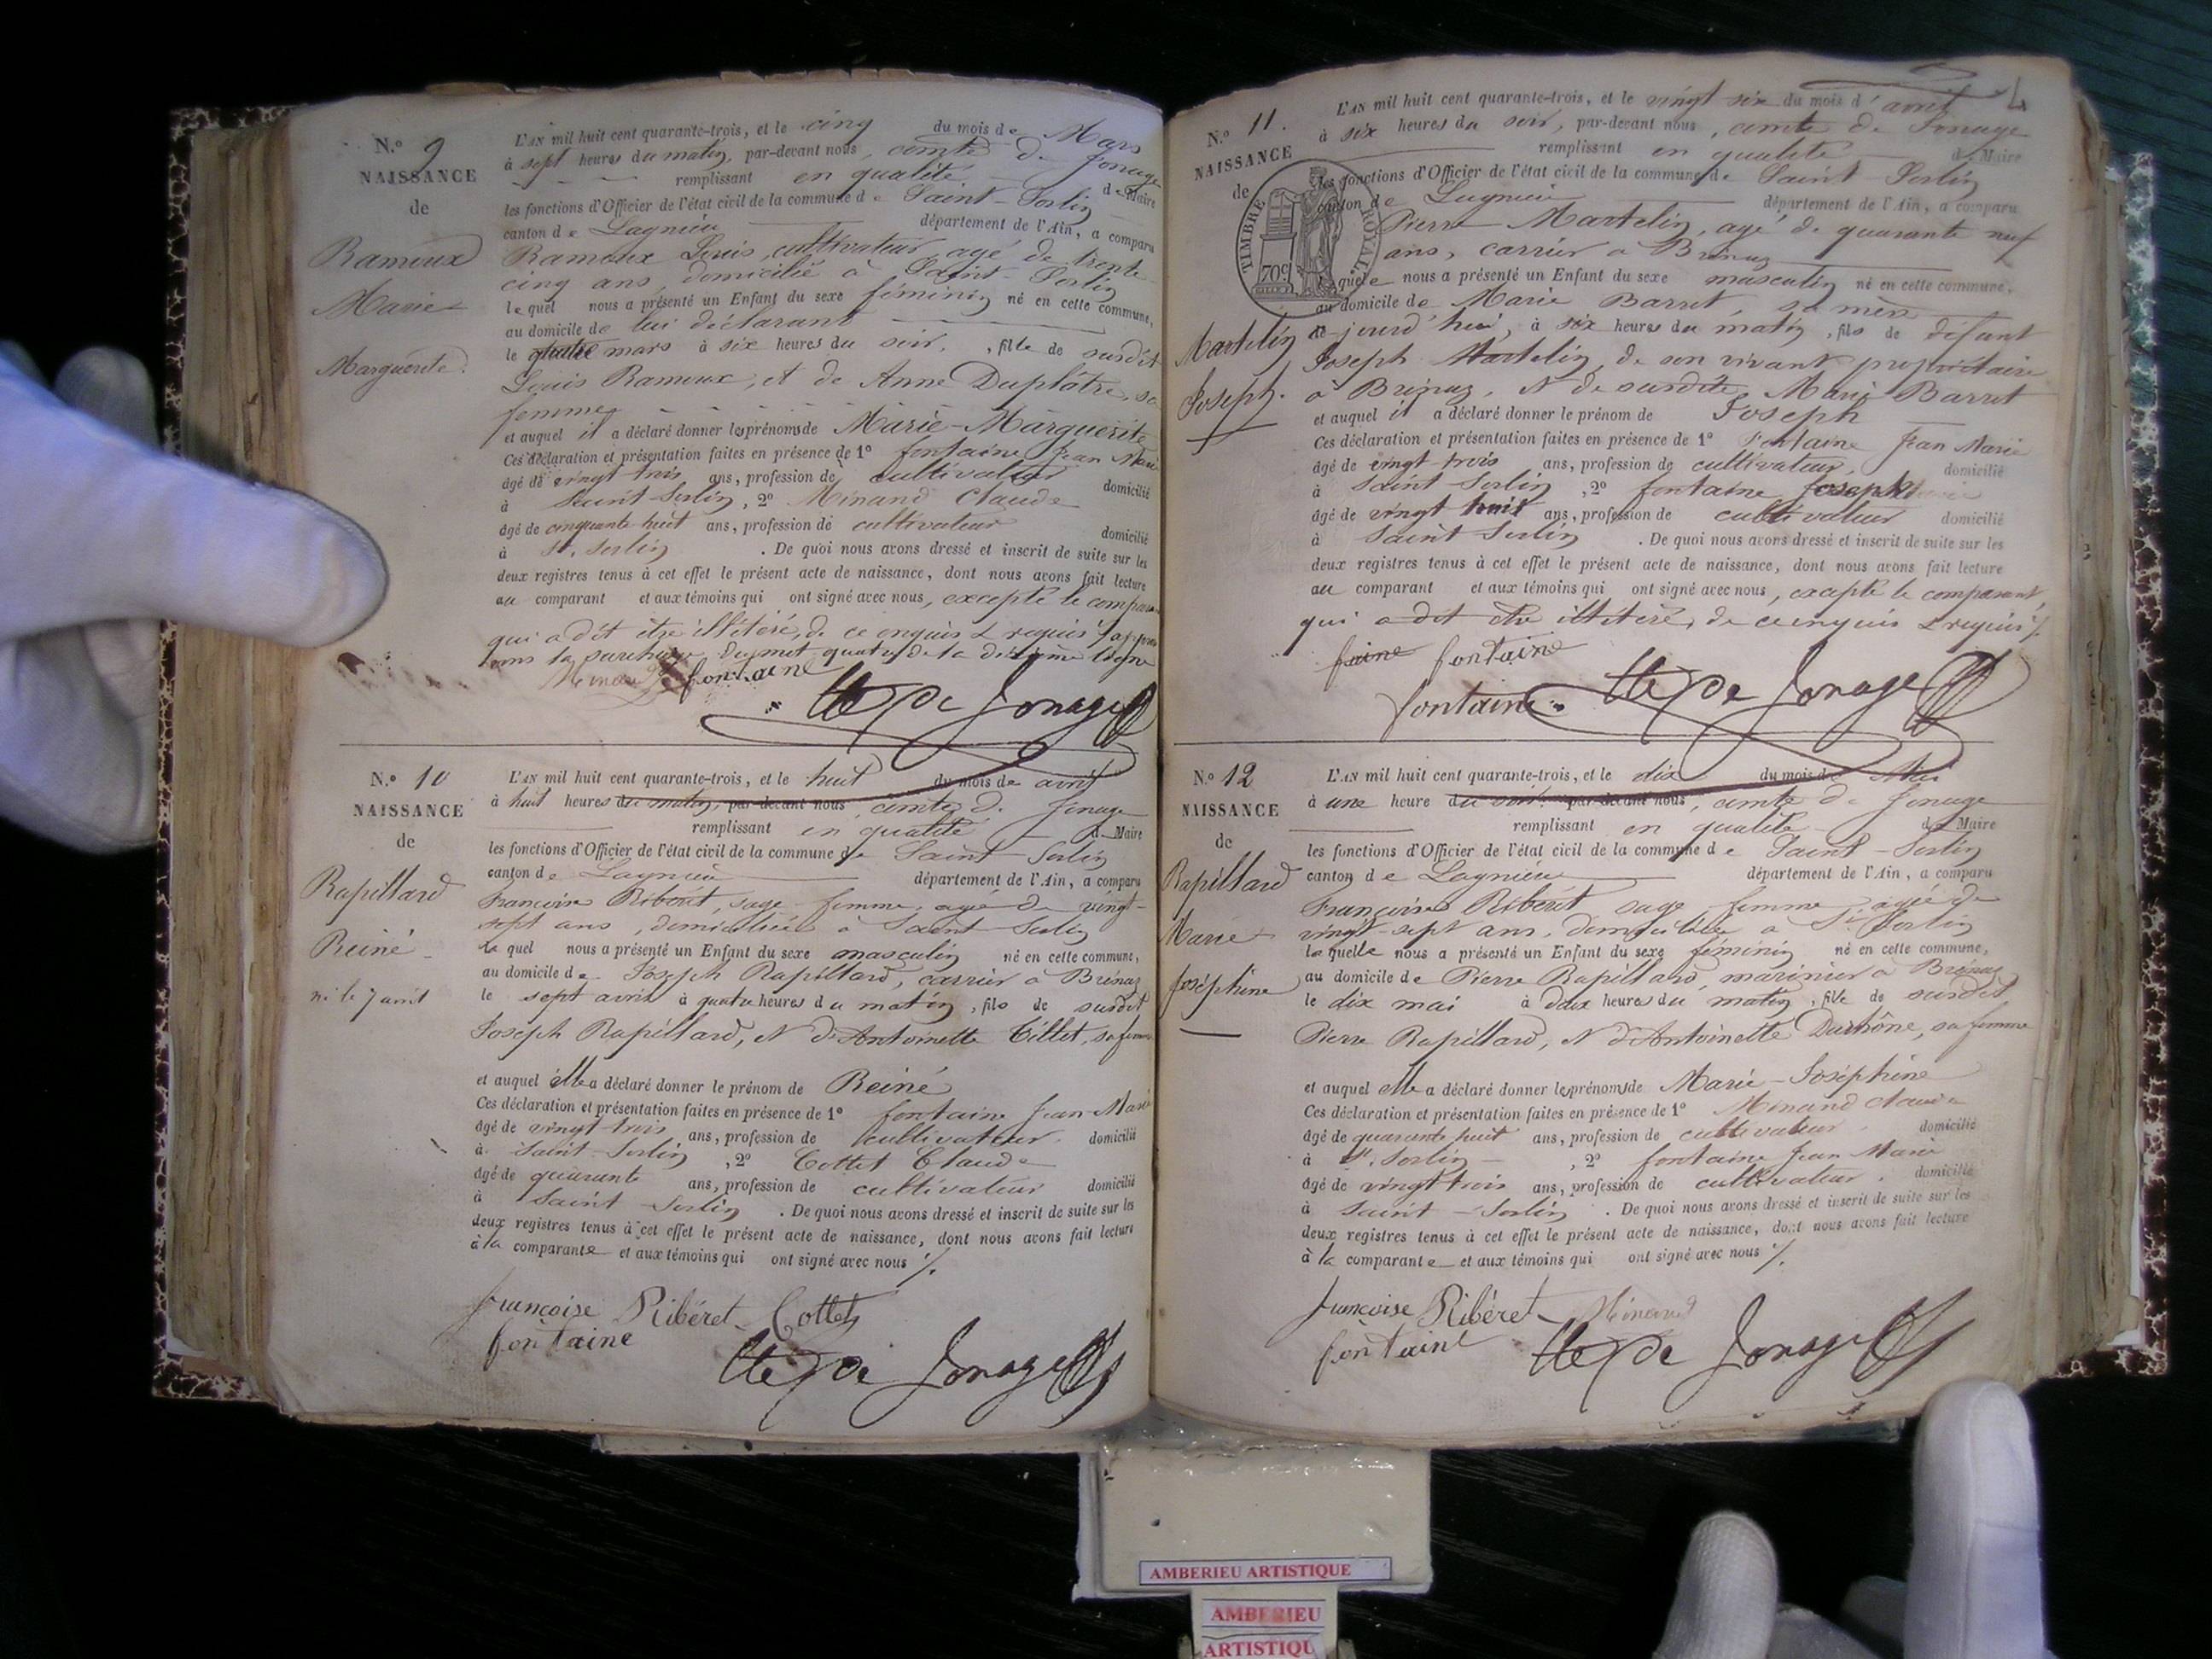 N.º 9
NAISSANCE
de
Rameux
Marie
Marguerite.
L'AN mil huit cent quarante-trois, et le cinq du mois de Mars
à sept heures du matin, par-devant nous, comte de Jonage
remplissant en qualité de Maire
les fonctions d'Officier de l'état civil de la commune de Saint-Sorlin
canton de Lagnieu département de l'Ain, a comparu
Rameux Louis, cultivateur agé de trente
cinq ans, domicilié à Saint-Sorlin
lequel nous a présenté un Enfant du sexe féminin né en cette commune,
au domicile de lui déclarant
le quatre mars à six heures du soir, fille de susdit
Louis Rameux, et de Anne Duplâtre, sa
femme
et auquel il a déclaré donner les prénoms de Marie-Marguerite
Ces déclaration et présentation faites en présence de 1º fontaine Jean Marie
âgé de vingt trois ans, profession de cultivateur domicilié
à Saint-Sorlin, 2º Minand Claude
âgé de cinquante huit ans, profession de cultivateur domicilié
à St. Sorlin. De quoi nous avons dressé et inscrit de suite sur les
deux registres tenus à cet effet le présent acte de naissance, dont nous avons fait lecture
au comparant et aux témoins qui ont signé avec nous, excepté le comparant
qui a dit être illitéré, de ce enquis & requis
la surcharge du mot quatre de la dixième ligne
Minand fontaine
Cte de Jonage
N.º 10
NAISSANCE
de
Rapillard
Reiné
né le 7 avril
L'AN mil huit cent quarante-trois, et le huit du mois de avril
à huit heures du matin, par-devant nous, comte de Jonage
remplissant en qualité de Maire
les fonctions d'Officier de l'état civil de la commune de Saint-Sorlin
canton de Lagnieu département de l'Ain, a comparu
Françoise Ribéret, sage femme, agée de vingt-
sept ans, domiciliée à Saint-Sorlin
le quel nous a présenté un Enfant du sexe masculin né en cette commune,
au domicile de Joseph Rapillard, carrier à Brénaz
le sept avril à quatre heures du matin, fils de susdit
Joseph Rapillard, et d'Antoinette Tillet, sa femme
et auquel elle a déclaré donner le prénom de Reiné
Ces déclaration et présentation faites en présence de 1º fontaine Jean-Marie
âgé de vingt trois ans, profession de cultivateur domicilié
à Saint-Sorlin, 2º Cottet Claude
âgé de quarante ans, profession de cultivateur domicilié
à Saint-Sorlin. De quoi nous avons dressé et inscrit de suite sur les
deux registres tenus à cet effet le présent acte de naissance, dont nous avons fait lecture
à la comparante et aux témoins qui ont signé avec nous ./.
françoise Ribéret Cottet
fontaine
Cte de Jonage
4
N.º 11.
NAISSANCE
de
TIMBRE ROYAL
70c
Martelin
Joseph.
L'AN mil huit cent quarante-trois, et le vingt six du mois d'avril
à six heures du soir, par-devant nous, comte de Jonage
remplissant en qualité de Maire
les fonctions d'Officier de l'état civil de la commune de Saint-Sorlin
canton de Lagnieu département de l'Ain, a comparu
Pierre Martelin, agé de quarante neuf
ans, carrier à Brénaz
lequel nous a présenté un Enfant du sexe masculin né en cette commune,
au domicile de Marie Barret, sa mère
ce jourd'hui, à six heures du matin, fils de défunt
Joseph Martelin, de son vivant propriétaire
à Brénaz, et de susdite Marie Barret
et auquel il a déclaré donner le prénom de Joseph
Ces déclaration et présentation faites en présence de 1º Fontaine Jean Marie
âgé de vingt-trois ans, profession de cultivateur, domicilié
à Saint-Sorlin, 2º fontaine Joseph
âgé de vingt huit ans, profession de cultivateur domicilié
à Saint Sorlin. De quoi nous avons dressé et inscrit de suite sur les
deux registres tenus à cet effet le présent acte de naissance, dont nous avons fait lecture
au comparant et aux témoins qui ont signé avec nous, excepté le comparant,
qui a dit être illitéré, de ce enquis & requis ./.
faine fontaine
fontaine Cte de Jonage
N.º 12
NAISSANCE
de
Rapillard
Marie
Joséphine
L'AN mil huit cent quarante-trois, et le dix du mois de Mai
à une heure du soir, par-devant nous, comte de Jonage
remplissant en qualité de Maire
les fonctions d'Officier de l'état civil de la commune de Saint-Sorlin
canton de Lagnieu département de l'Ain, a comparu
Françoise Ribéret sage femme agée de
vingt-sept ans, domiciliée à St. Sorlin
laquelle nous a présenté un Enfant du sexe féminin né en cette commune,
au domicile de Pierre Rapillard, marinier à Brénaz
le dix mai à deux heures du matin, fille de susdit
Pierre Rapillard, et d'Antoinette Durhône, sa femme
et auquel elle a déclaré donner les prénoms de Marie-Joséphine
Ces déclaration et présentation faites en présence de 1º Minand Claude
âgé de quarante huit ans, profession de cultivateur, domicilié
à St. Sorlin, 2º fontaine Jean Marie
âgé de vingt trois ans, profession de cultivateur, domicilié
à Saint-Sorlin. De quoi nous avons dressé et inscrit de suite sur les
deux registres tenus à cet effet le présent acte de naissance, dont nous avons fait lecture
à la comparante et aux témoins qui ont signé avec nous ./.
françoise Ribéret Minand
fontaine Cte de Jonage
AMBERIEU ARTISTIQUE
AMBERIEU
ARTISTIQU